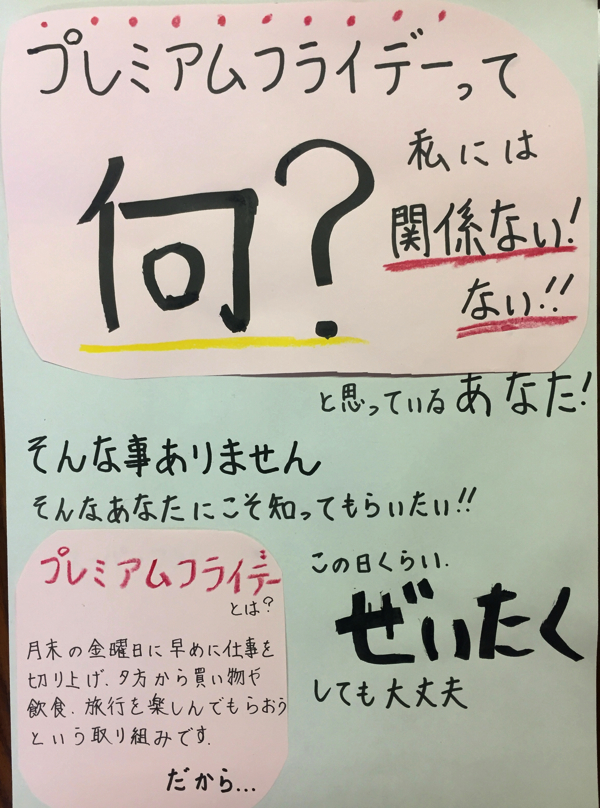 プレミアムフライデーって
何?
私には
関係ない!
ない!!
と思っているあなた!
そんな事ありません
そんなあなたにこそ知ってもらいたい!!
プレミアムフライデー
とは?
月末の金曜日に早めに仕事を
切り上げ、夕方から買い物や
飲食、旅行を楽しんでもらおう
という取り組みです.
だから...
この日くらい.
ぜいたく
しても大丈夫